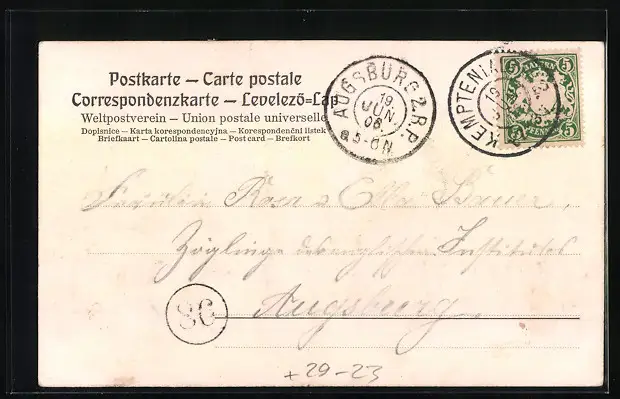 Postkarte – Carte postale
Correspondenzkarte – Levelező-Lap
Weltpostverein – Union postale universelle
Dopisnice – Karta korespondencyjna – Korespondenční lístek
Briefkaart – Cartolina postale – Postcard – Brefkort
AUGSBURG 2.R.P.
19.
JUN.
06
5-6N.
KEMPTEN
19
5 BAYERN 5
5 PFENNIG 5
Fräulein Rosa u Ella Bauer,
Zöglinge des englischen Institutes
Augsburg.
86
+ 29-23